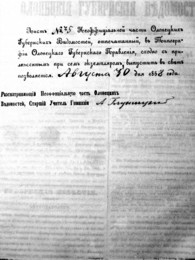 Эосмъ №75. Неоффиціальной части Олонецкихъ
Губернскихъ Вѣдомостей, отпечатанный, въ Типогра-
фіи Олонецкаго Губернскаго Правленія, сходно съ при-
ложеннымъ при семъ экземпляромъ, выпустить въ свѣтъ
позволяется. Августъ 10 дня 1858 года.
Разсматривающій Неоффиціальную часть Олонецкихъ
Вѣдомостей, Старшій Учитель Гимназіи